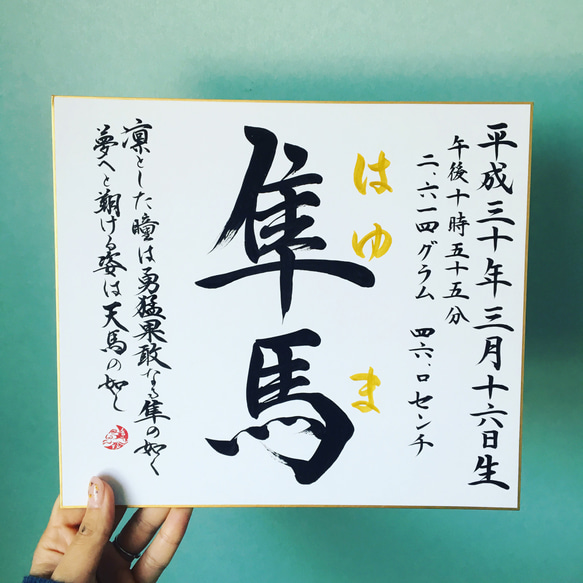 平成三十年三月十六日生
午後十時五十五分
二、六一四グラム 四六、〇センチ
はゆま
隼馬
凛とした瞳は勇猛果敢なる隼の如く
夢へと翔ける姿は天馬の如し